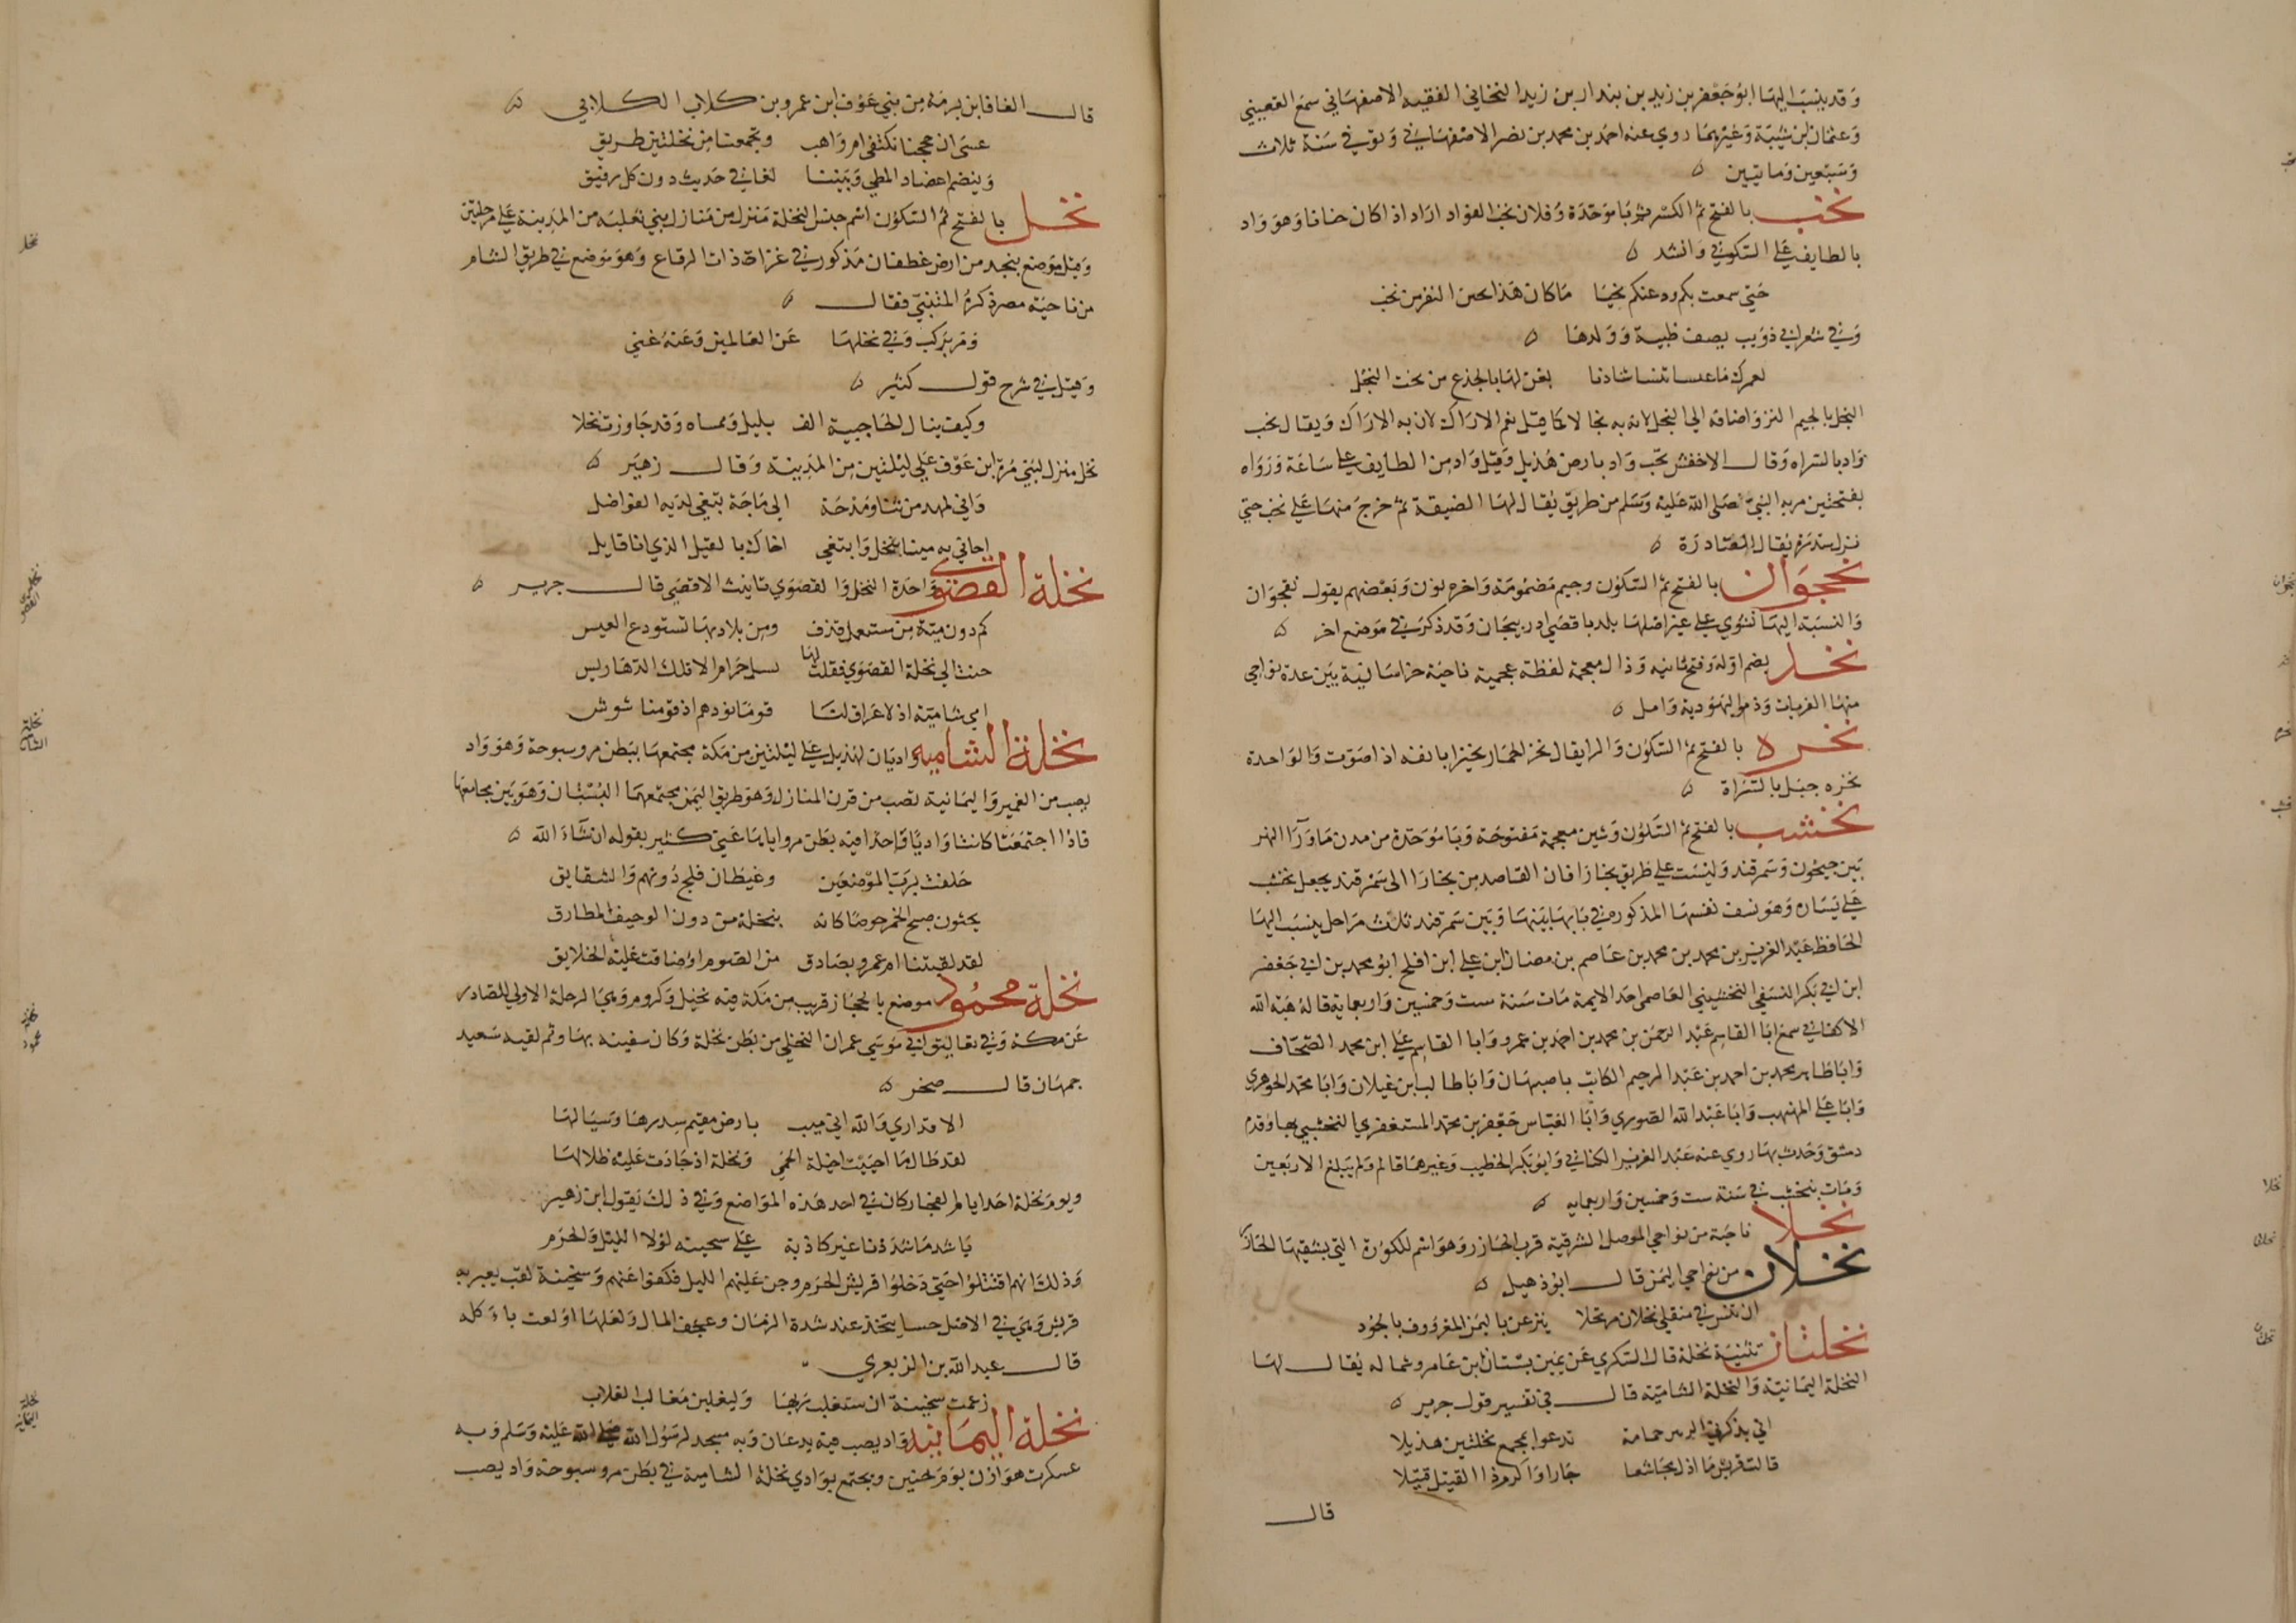 وقد ينسب اليها ابو جعفر بن زيد بن بندار بن زيد النخاني الفقيه الاصفهاني سمع القعيني
وعثمان ابن شيبة وغيرهما روي عنه احمد بن محمد بن نصر الاصفهاني وتوفي سنة ثلاث
وسبعين ومايتين
نخب بالفتح ثم الكسر ثم با موحدة وفلان نخب الفواد اذا كان جبانا وهو واد
بالطايف علي السكوني وانشد
حتي سمعت بكم ودعتكم نخبا ما كان هذا بحين النفر من نخب
وفي شعر ابي ذويب يصف ظبية وولدها
لعمرك ما عيساء تنسا شادنا يعن لها بالجزع من نخب النجل
النجل بالجيم النز واضافه الي النجل لان به نجالا كما قيل نعم الاراك لان به الاراك ويقال نخب
واد بالسراه وقال الاخفش نخب واد بارض هذيل وقيل واد من الطايف علي ساعة ورواه
بفتحتين مر به النبي صلي الله عليه وسلم من طريق يقال لها الضيقة ثم خرج منها علي نخب حتي
نزل سدرة يقال لها الصادرة
نخجوان بالفتح ثم السكون وجيم مضمومة واخره نون وبعضهم يقول نقجوان
والنسبة اليها نشوي علي غير اصلها بلد باقصي ادربيجان وقد ذكر في موضع اخر
نخذ بضم اوله وفتح ثانيه وذال معجمة لفظة عجمية ناحية خراسانية بين عدة نواحي
منها الفريات وذم واليهودية وامل
نخره بالفتح ثم السكون والرا يقال نخر الحمار نخيرا بانفه اذا صوت والواحدة
نخره جبل بالسراة
نخشب بالفتح ثم السكون وشين معجمة مفتوحة وبا موحدة من مدن ماورا النهر
بين جيحون وسمرقند وليست علي طريق بخارا فان القاصد من بخارا الي سمرقند يجعل نخشب
علي يساره وهو نسف نفسها المذكور في بابها بينها وبين سمرقند ثلث مراحل ينسب اليها
الحافظ عبد العزيز بن محمد بن محمد بن عاصم بن رمضان ابن علي ابن افلح ابو محمد بن ابي جعفر
ابن ابي بكر النسفي النخشبي العاصمي احد الايمة مات سنة ست وخمسين واربعماية قاله هبة الله
الاكفاني سمع ابا القاسم عبد الرحمن بن محمد بن احمد بن عمرو وابا القاسم علي ابن محمد الصحاف
وابا طاهر محمد بن احمد بن عبد الرحيم الكاتب باصبهان وابا طالب ابن غيلان وابا محمد الجوهري
وابا علي المهذب وابا عبد الله الصوري وابا العباس جعفر بن محمد المستغفري النخشبي بها وقدم
دمشق وحدث بها روي عنه عبد العزيز الكتاني وابو بكر الخطيب وغيرهما قال ولم يبلغ الاربعين
ومات بنخشب في سنة ست وخمسين واربعمايه
نخلا ناحية من نواحي الموصل الشرقية قرب الخازر وهو اسم للكورة التي يسقيها الخازر
نخلان من نواحي اليمن قال ابو دهبل
ان تمس في منقلي نخلان مرتحلا ينزعن باليمن المعروف بالجود
نخلتان تثنية نخلة قال السكري عن يمين بستان ابن عامر وشماله يقال لها
النخلة اليمانية والنخلة الشامية قال في تفسير قول جرير
اني يذكرني الزبير حمامة تدعو بمجمع نخلتين هذيلا
قالت قريش ما اذل مجاشعا جارا واكرم ذا القتيل قتيلا
قال
قال الغافا ابن برمة من بني عوف ابن عمرو بن كلاب الكلابي
عسي ان حججنا نكتفي ام واهب وتجمعنا من نخلتين طريق
وينضم اعضاد المطي وبيننا لغا في حديث دون كل رفيق
نخل بالفتح ثم السكون اسم جنس النخلة منزل من منازل بني ثعلبه من المدينة علي مرحلتين
وقيل موضع بنجد من ارض غطفان مذكور في غزاة ذات الرقاع وهو موضع في طريق الشام
من ناحية مصر ذكره المتنبي فقال
ومر بركب وفي نخلها عن العالمين وعنه غني
وقيل في شرح قول كثير
وكيف ينال الحاجبية الف بليل وممساه وقد جاوزت نخلا
نخل منزل لبني مرة ابن عوف علي ليلتين من المدينة وقال زهير
واني لمهد من ثنا ومدحة الي ماجد تبغي لديه الفواضل
احابي به ميتا بنخل وابتغي اخاك بالقيل الذي انا قايل
نخلة القصوي واحدة النخل والقصوي تانيث الاقصي قال جرير
كم دون مية من مستعمل قذف ومن بلاد بها تستودع العيس
حنت الي نخلة القصوي فقلت لها بسل حرام الا تلك الدهاريس
امي شامية اذ لا عراق لنا قوما نودهم اذ قومنا شوش
نخلة الشاميه واديان لهذيل علي ليلتين من مكة مجتمعها ببطن مر وسبوحة وهو واد
يصب من الغمير واليمانية تصب من قرن المنازل وهو طريق اليمن مجتمعها البستان وهو بين مجامعها
فاذا اجتمعتا كانتا واديا واحدا فيه بطن مر وايا هما عني كثير بقوله ان شاء الله
حلفت برب الموضعين وغيطان فلج دونهم والشقايق
يحثون صبح الحمر خوصا كانه بنخلة من دون الوحيف المطارق
لقد لقيتنا ام عمرو بصادق من الصوم او ضاقت عليه الخلايق
نخلة محمود موضع بالحجاز قريب من مكة فيه نخيل وكروم وهي المرحلة الاولي للصادر
عن مكة وفي تعاليق ابي موسي عمران النخلي من بطن نخلة وكان سفينه بها وثم لقيه سعيد
جمهان قال صخر
الا قد اري والله اني ميت بارض مقيم سدرها وسيالها
لقد طال ما احييت اخيلة الحمي ونخلة اذ جادت عليه ظلالها
ويوم نخلة احد ايام الفجار كان في احد هذه المواضع وفي ذلك يقول ابن زهير
يا شد ما شددنا غير كاذبة علي سخينه لولا الليل والحرم
وذلك انهم اقتتلوا حتي دخلوا قريش الحرم وجن عليهم الليل فكفوا عنهم وسخينة لقب يعير به
قريش وهي في الاصل حسا يتخذ عند شدة الزمان وعجف المال ولعلها اولعت باكله
قال عبد الله بن الزبعري
زعمت سخينة ان ستغلب ربها وليغلبن مغالب الغلاب
نخلة اليمانيه واد يصب فيه يدعان وبه مسجد لرسول الله صلي الله عليه وسلم وبه
عسكرت هوازن يوم حنين ويجتمع بوادي نخلة الشامية في بطن مر وسبوحة واد يصب